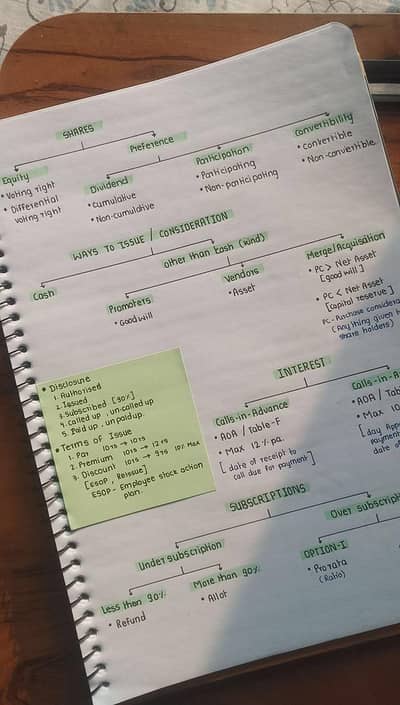 SHARES
Equity
• Voting right
• Differential
voting right
Preference
Dividend
• Cumulative
• Non-cumulative
Participation
• Participating
• Non-participating
Convertibility
• Convertible
• Non-convertible
WAYS TO ISSUE / CONSIDERATION
Cash
other than Cash (kind)
Promoters
• Goodwill
Vendors
• Asset
Merge/Acquisation
• PC > Net Asset
[good will]
• PC < Net Asset
[capital reserve]
PC - Purchase considera
(Anything given t
share holders)
• Disclosure
1. Authorised
2. Issued
3. Subscribed [90%]
4. Called up, un-called up
5. Paid up, unpaid up.
• Terms of Issue
1. Par 10rs → 10rs
2. Premium 10rs → 12rs
3. Discount 10rs → 9rs 10% Max
[ESOP, Reissue]
ESOP - Employee stock action
plan.
INTEREST
Calls-in-Advance
• AOA / Table-F
• Max 12% pa.
[date of receipt to
call due for payment]
Calls-in-A
• AOA / Tab
• Max 10
[day App
payment
date of
SUBSCRIPTIONS
Under subscription
Less than 90%
• Refund
More than 90%
• Allot
Over subscript
OPTION-I
• Pro rata
(Ratio)